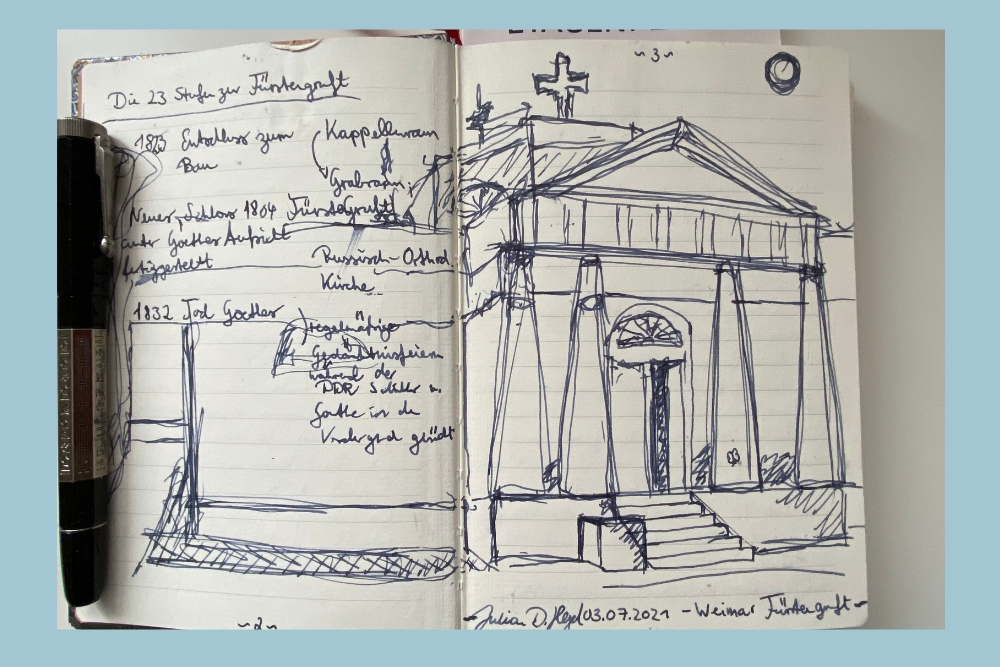 Die 23 Stufen zur Fürstengruft
Entschluss zum
Bau
Neues Schloss 1804
unter Goethes Aufsicht
fertiggestellt
1832 Tod Goethes
Kappellenraum
Grabraum,
Fürstengruft
Russisch-Orthod.
Kirche
regelmäßige
Gedächtnisfeiern
während der
DDR Schiller u.
Goethe in den
gerückt
~2~
~3~
Julian D. 03.07.2021 - Weimar Fürstengruft -